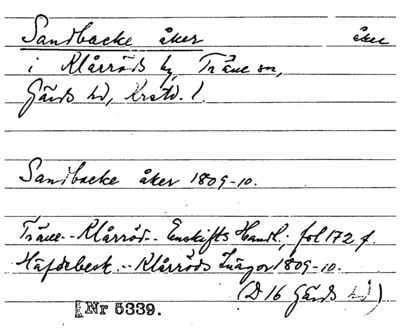 Sandbacke åker åker
i Klårröds by, Träne sn,
Gärds hd, Krstd. l.
Sandbacke åker 1809-10.
Träne - Klårröd - Enskifts Handl.; fol 172 f.
Häfdebesk. - Klårröds Inägor 1809-10.
(D 16 Gärds hd)
Nr 5339.